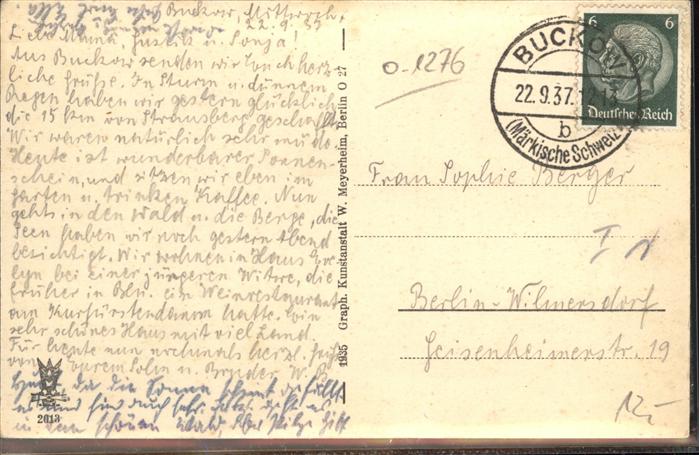 Buckow, Mittwoch,
22.9.37
Liebe Mama, Justus u. Sonja!
Aus Buckow senden wir Euch herz-
liche Grüße. In Sturm u. dünnem
Regen haben wir gestern glücklich
die 15 km von Strausberg geschafft.
Wir waren natürlich sehr müde.
Heute ist wunderbarer Sonnen-
schein, und sitzen wir eben im
Garten u. trinken Kaffee. Nun
gehts in den Wald u. die Berge, die
Seen haben wir noch gestern Abend
besichtigt. Wir wohnen in Haus
bei einer jüngeren Witwe, die
früher in Bln. ein Weinrestaurant
am Kurfürstendamm hatte. Ein
sehr schönes Haus mit viel Land.
Für heute nun nochmals herzl. Grüße
von Eurem Sohn u. Bruder W.
da die Sonne scheint gefällt
in dem schönen Wald,
2613
1935 Graph. Kunstanstalt W. Meyerheim, Berlin O 27
0-1276
BUCKOW
22.9.37.
b
(Märkische Schweiz)
6 6
Deutsches Reich
Frau Sophie Berger
Berlin-Wilmersdorf
Geisenheimerstr. 19
12,-